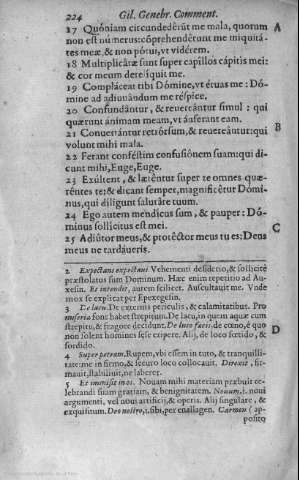 224 Gil. Genebr. Comment.
17 Quóniam circundedérūt me mala, quorum A
non est númerus: cōprehendérunt me iniquitá-
tes meæ, & non pótui, vt vidérem.
18 Multiplicátæ sunt super capíllos cápitis mei:
& cor meum dereliquit me.
19 Compláceat tibi Dómine, vt éruas me: Dó-
mine ad adiuuándum me réspice.
20 Confundántur, & reuereántur simul: qui
quærunt ánimam meam, vt áuferant eam.
21 Conuertántur retrórsum, & reuereātur: qui B
volunt mihi mala.
22 Ferant conféstim confusiónem suam: qui di-
cunt mihi, Euge, Euge.
23 Exúltent, & læténtur super te omnes quæ-
réntes te: & dicant semper, magnificétur Dómi-
nus, qui díligunt salutáre tuum.
24 Ego autem mendícus sum, & pauper: Dó- C
minus sollícitus est mei.
25 Adiútor meus, & protéctor meus tu es: Deus
meus ne tardáueris.
2 Expectans expectaui Vehementi desiderio, & sollicitè
præstolatus sum Dominum. Hæc enim repetitio ad Au-
xesin. Et intendit, aurem scilicet. Auscultauit me. Vnde
mox se explicat per Epexegesin.
3 De lacu. De extremis periculis, & calamitatibus. Pro
miseriæ fons habet strepitum. De lacu, in quem aquæ cum
strepitu, & fragore decidunt. De luto fæcis, de cœno, è quo D
non solent homines sese eripere. Alij, de luto fœtido, &
sordido.
4 Super petram. Rupem, vbi essem in tuto, & tranquilli-
tate: me in firmo, & securo loco collocauit. Direxit, fir-
mauit, stabiliuit, ne laberer.
5 Et immisit in os. Nouam mihi materiam præbuit ce-
lebrandi suam gratiam, & benignitatem. Nouum, i. noui
argumenti, vel noui artificij, & operis. Alij singulare, &
exquisitum. Deo nostro, i. sibi, per enallagen. Carmen (ap-
posito